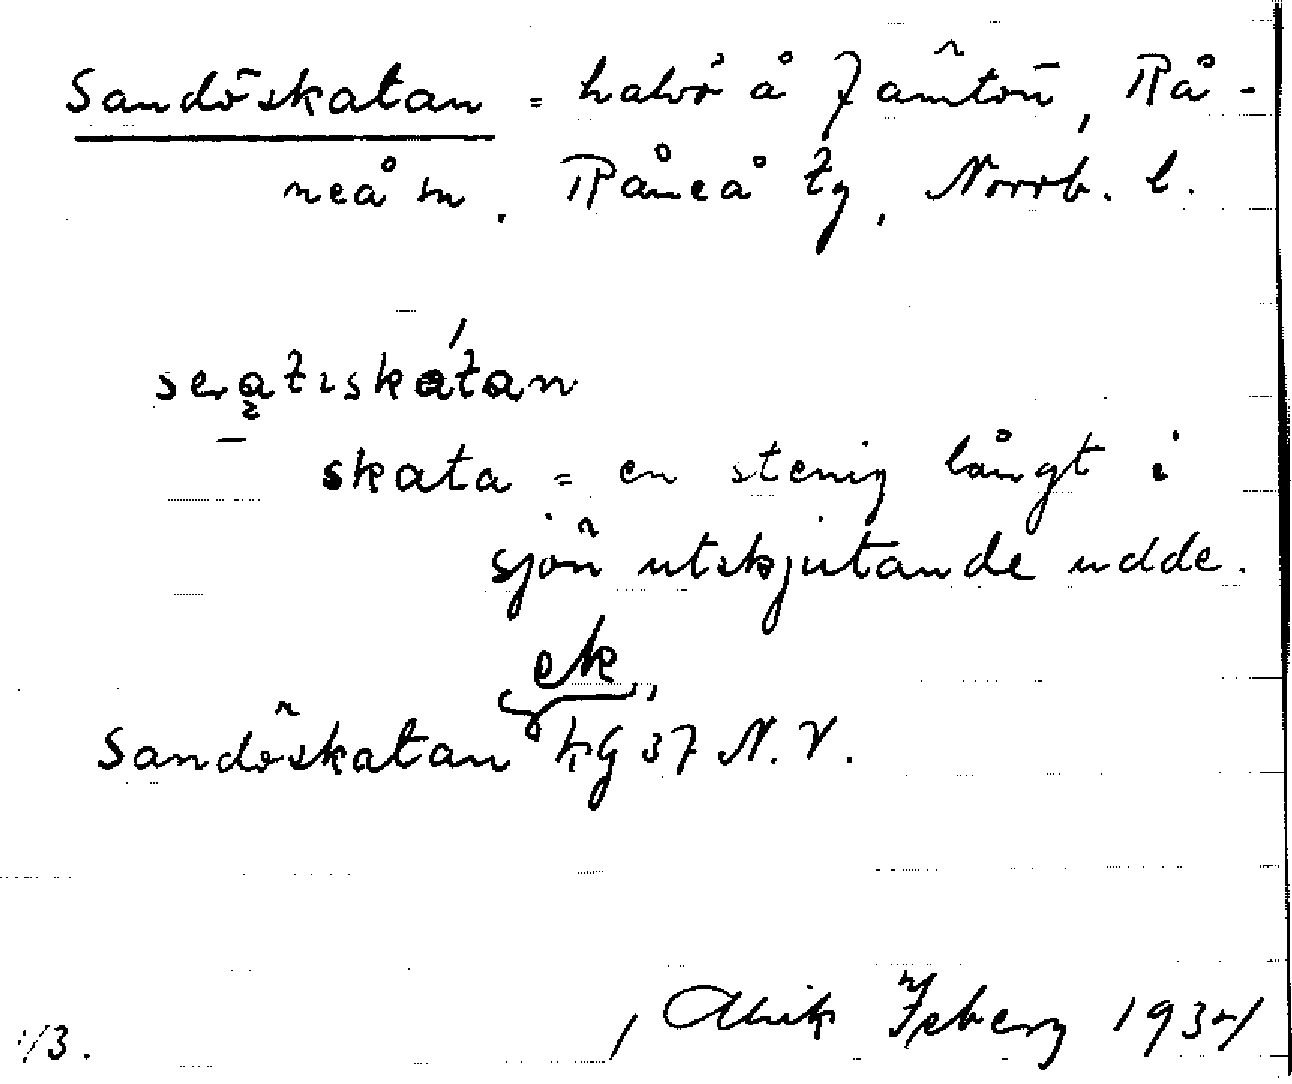 Sandöskatan = halvö å Jämtön, Rå-
neå sn. Råneå tg, Norrb. l.
skata = en stenig långt i
sjön utskjutande udde.
ek
Sandöskatan kg 37 N.V.
1/3.
Isberg 1934